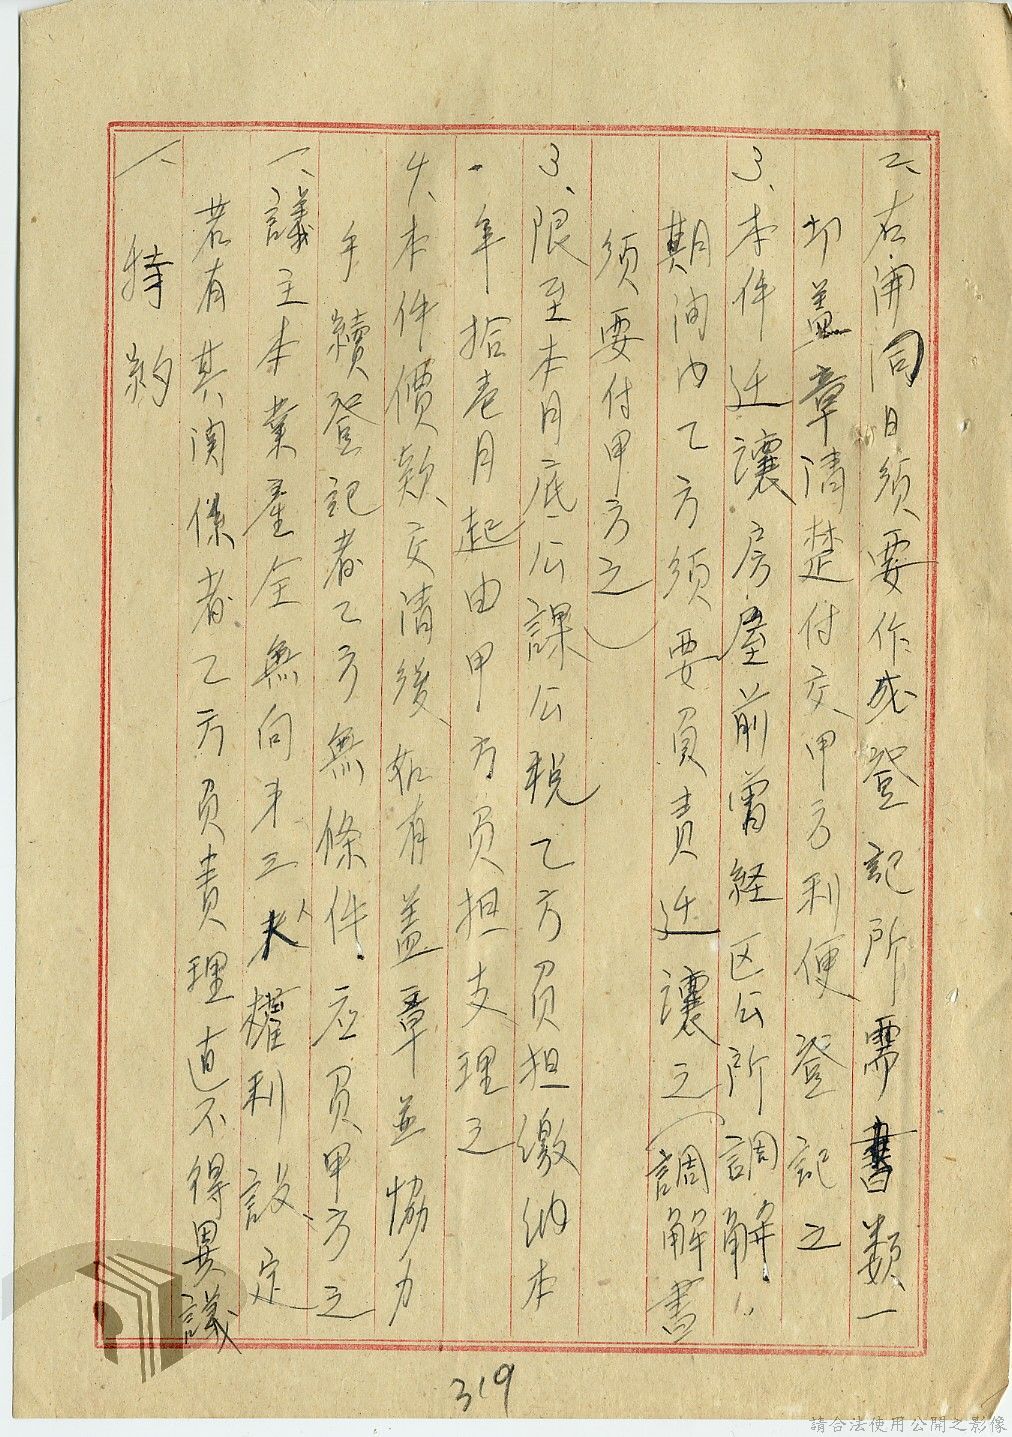 2、右開同日須要作成登記所需書類一
切蓋章清楚付交甲方利便登記之
3、本件迁讓房屋前曾経区公所調解
期間内乙方須要負責迁讓之（調解書
須要付甲方之）
3、限至本月底公課公税乙方負担繳納本
年拾壱月起由甲方負担支理之
4、本件價款交清後如有蓋章並協力
手續登記者乙方無條件应負甲方之
一、議主本業產全無向才三人權利設定
若有其関係者乙方負責理直不得異議
一、特約
319
請合法使用公開之影像